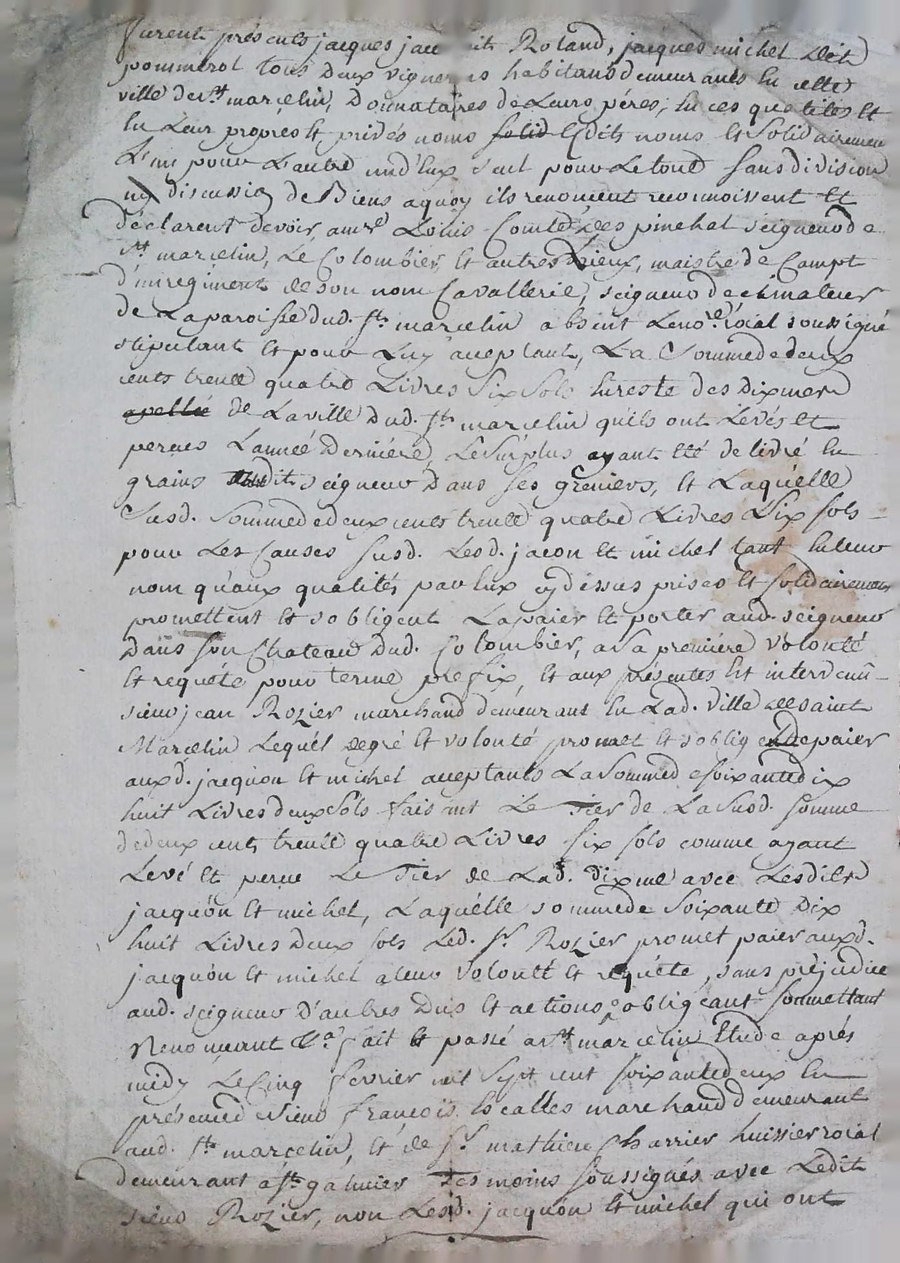 furent présents jacques jac dit Roland, jacques michel dit
pommerol tous deux vignerons habitans demeurants en cette
ville de st. marcelin, Donnataires de Leurs péres, en ces qualités et
en Leur propres et privés noms solid Esdits noms et solidairement
L'un pour L'autre un d'Eux seul pour Le tout sans division
ny discussion de Biens a quoy ils renoncent reconnoissent et
déclarent devoir a mre. Louis Comte des pinchat seigneur de
st. marcelin, Le Colombier, et autres Lieux, maistre de Campt
d'un régiment de son nom Cavallerie, seigneur decimateur
de La paroisse dud. st. marcelin absent Le nore. roial soussigné
stipulant et pour Luy aceptant, La Somme de deux
cents trente quatre Livres six sols En reste des dixmes
apellée de La ville dud. st. marcelin qu'ils ont Levés et
percus L'année Derniére, Le surplus ayant Eté délivré En
grains audit seigneur dans ses greniers, et Laquélle
susd. somme de deux cents trente quatre Livres six sols
pour Les Causes susd. Lesd. jacon et michel tant En Leur
nom qu'aux qualités par Eux cy dessus prises et solidairement
promettent et s'obligent La paier et porter aud. seigneur
dans son Chateau dud. Colombier, a sa premiére volonté
et requéte pour terme prefix, et aux présentes Est intervenu
sieur jean Rozier marchand demeurant En Lad. ville de saint
Marcelin Lequél de gré et volonté promet et s'oblige de paier
auxd. jacquon et michel aceptants La Somme de soixante dix
huit Livres deux sols faisant Le Tier de La susd. somme
de deux cents trente quatre Livres six sols comme ayant
Levé et percu Le Tier de Lad. dixme avec Lesdits
jacquon et michel, Laquélle somme de soixante Dix
huit Livres deux sols Led. sr. Rozier promet paier auxd.
jacquon et michel a Leur volonté et requéte, sans préjudice
aud. seigneur D'autres Dus et actions, obligeant soumettant
Renonceant &a. fait et passé a st. marcelin Etude aprés
midy Le Cinq fevrier mil sept cent soixante deux En
présence de sieur françois Escalles marchand demeurant
aud. st. marcelin, et de sr. mathieu Charrier huissier roial
demeurant a st. galmier Tesmoins soussignés avec Ledit
sieur Rozier, non Lesd. jacquon et michel qui ont